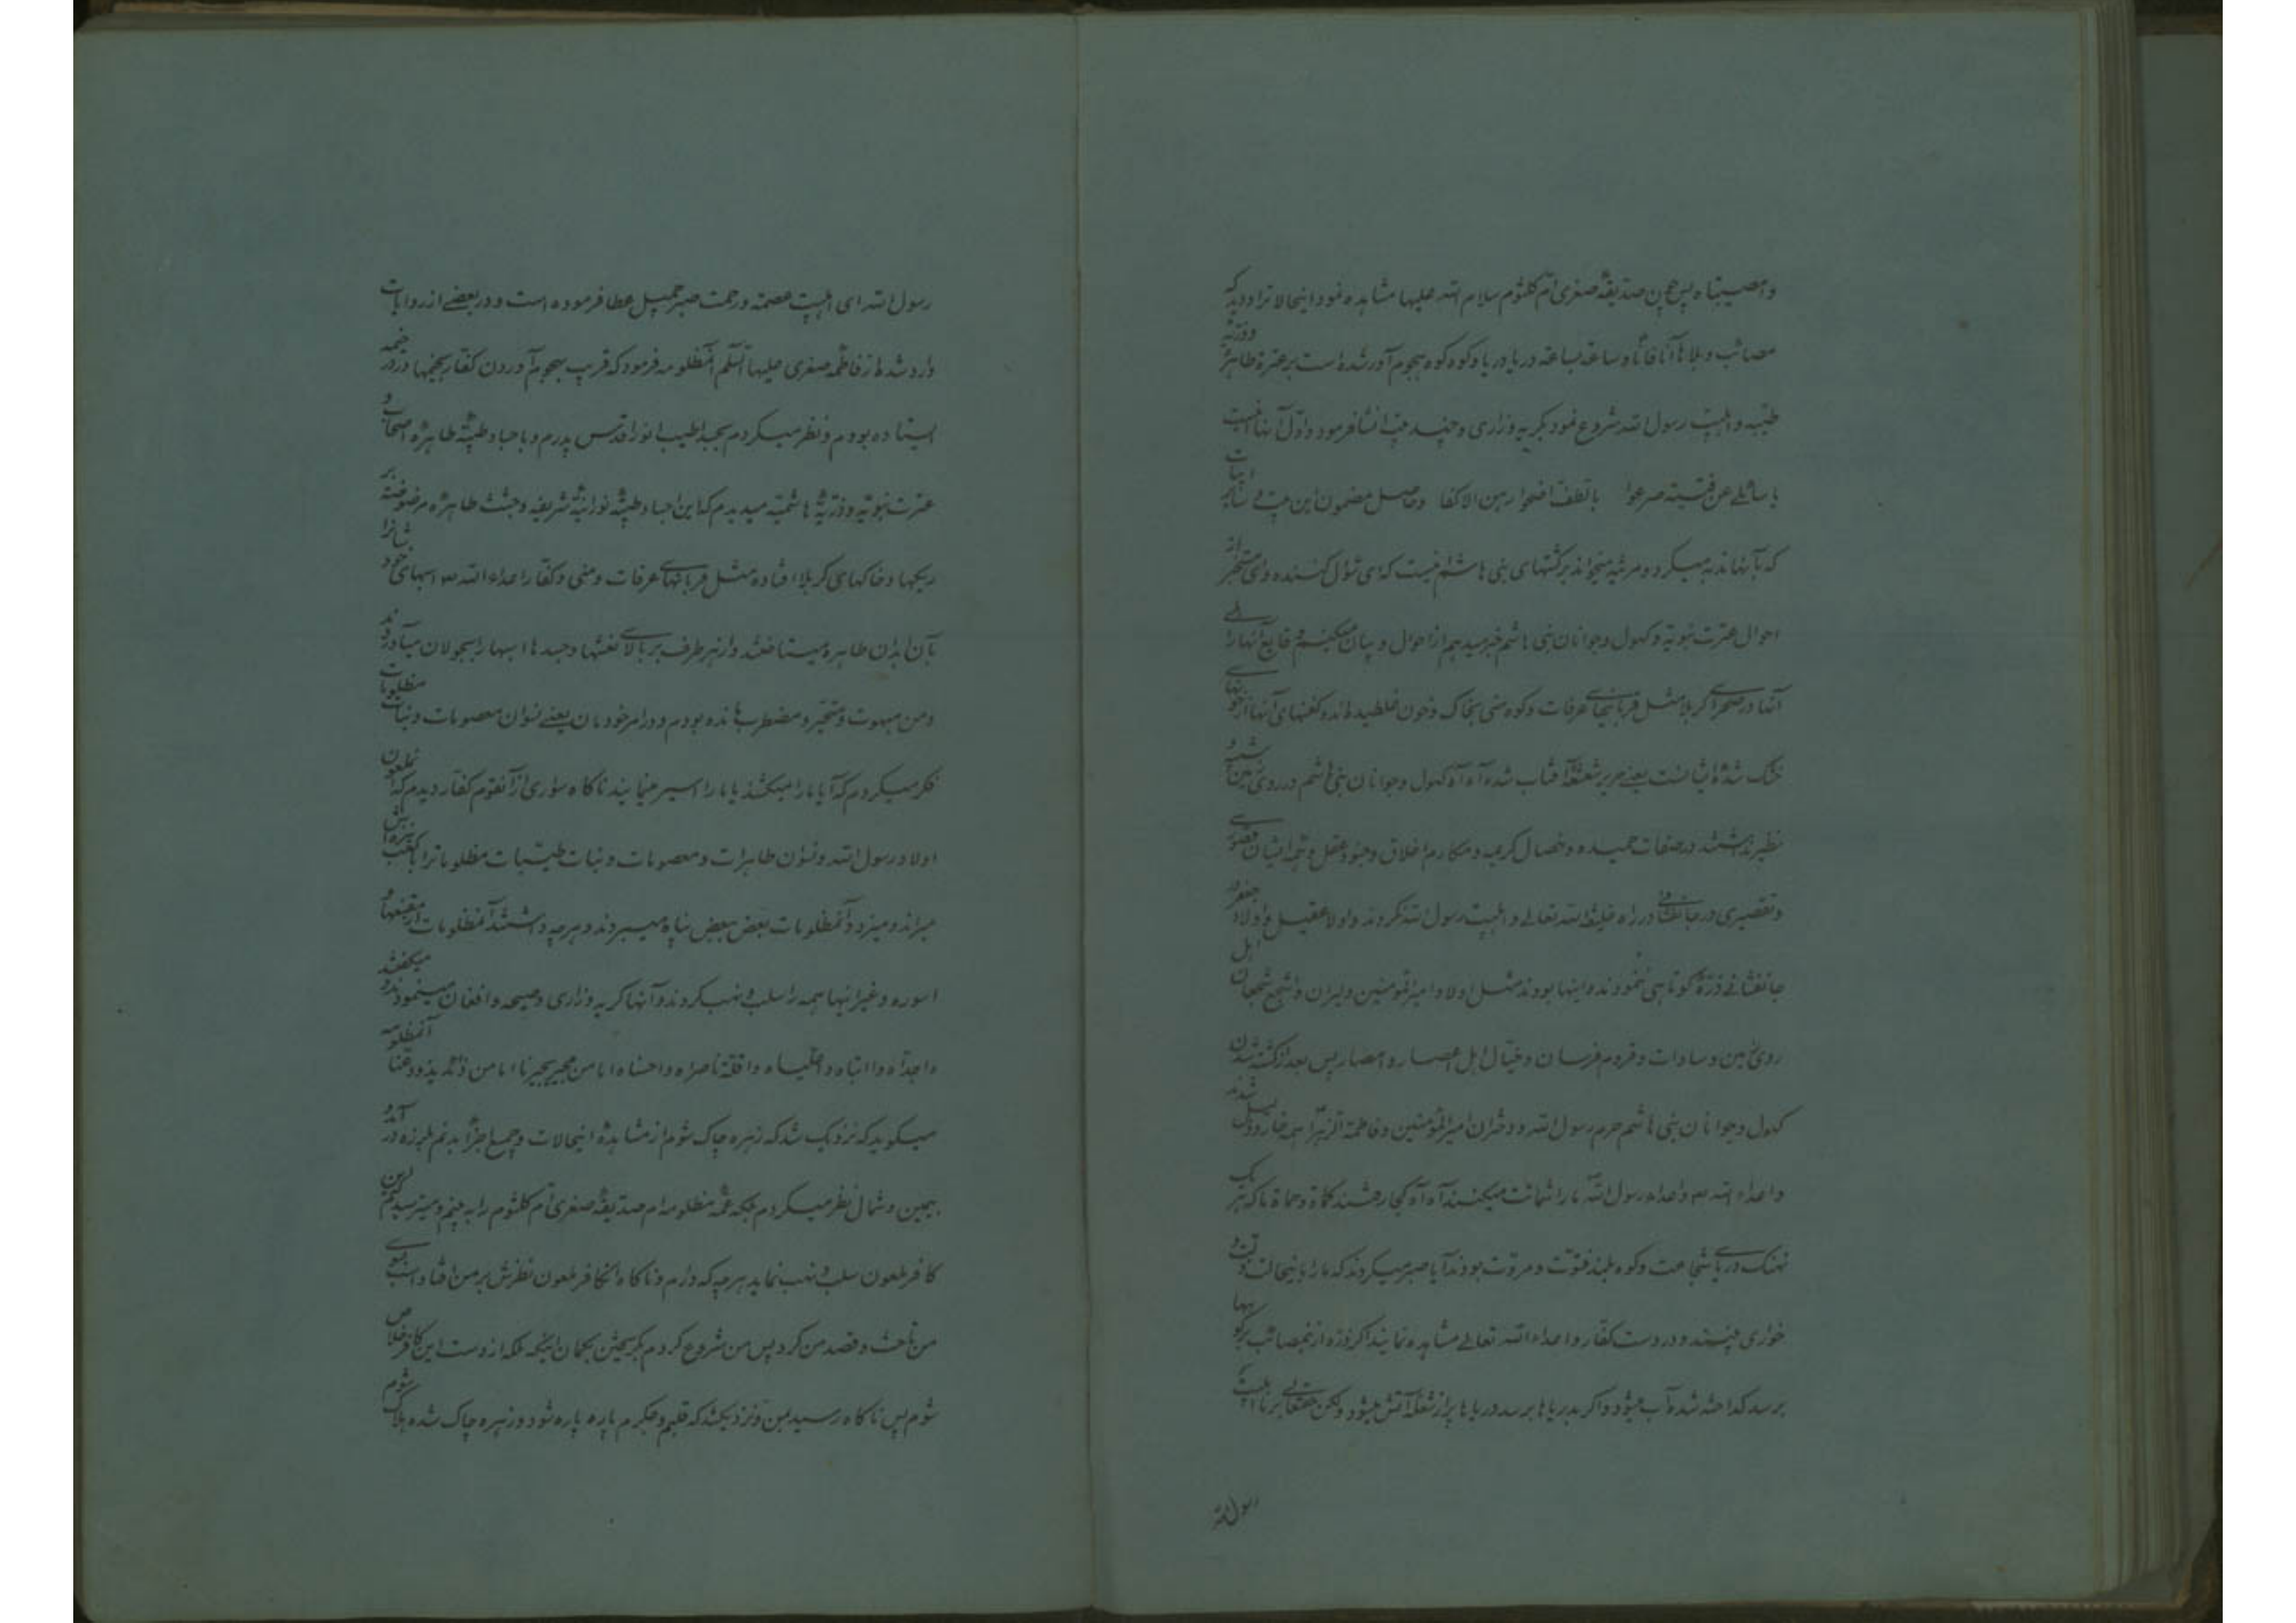 وامصیبتاه پس چون صدیقهٔ صغری ام کلثوم سلام الله علیها مشاهده نمود اینحالات را و دید که
مصائب و بلاها آنا فآنا و ساعة بساعة دریا دریا و کوه کوه هجوم آور شده است بر عترة طاهرهٔ و ذریهٔ
طیبه و اهلبیت رسول الله شروع نمود بگریه و زاری و چند بیت انشا فرمود و اول آنها اینست
یا سائلی عن فتیة صرعوا بالطف اضحوا رهن الاکفا وحاصل مضمون این بیت و سایر ابیات
که بآنها ندبه میکرد و مرثیه میخواند بر کشتهای بنی هاشم اینست که ای سؤال کننده و ای مستخبر از
احوال عترت نبویه و کهول و جوانان بنی هاشم خبر میدهم از احوال و بیان میکنم وقایع آنها را
آنها در صحرای کربلا مثل قربانیهای عرفات و کوه منی بخاک و خون غلطیده اند و کفنهای آنها از خونهای
خشک شده ایشانست یعنی بر شعشعهٔ آفتاب شده آه آه کهول و جوانان بنی هاشم در روی زمین شبیه و
نظیر نداشتند در صفات حمیده و خصال کریمه و مکارم اخلاق و جنود عقل و ایشان قصوری
و تقصیری در جانفشانی در راه خلیفة الله تعالی و اهلبیت رسول الله نکردند و اولاد عقیل و اولاد جعفر در
جانفشانی ذرهٔ کوتاهی ننمودند و اینها بودند مثل اولاد امیرالمؤمنین دلیران و اشجع شجعان اهل
روی زمین و سادات و قروم فرسان و اهل اعصار و امصار پس بعد از کشته شدن
کهول و جوانان بنی هاشم حرم رسول الله و دختران امیرالمؤمنین و فاطمة الزهرا همه خار و ذلیل شدند
و اعداء الله و اعداء رسول الله ما را شماتت میکنند آه آه کجا رفتند کماة و حماة ما که هر یک
نهنک دریای شجاعت و کوه بلند فتوت و مروت بودند آیا صبر میکردند که ما را باینحالت و
خواری ببینند و در دست کفار و اعداء الله تعالی مشاهده نمایند اگر ذره از این مصائب بر کوهها
برسد کداخته شده آب میشود و اگر بدریاها برسد دریاها پر از شعله آتش میشود ولکن حقتعالی بر ما اهلبیت
رسول الله
رسول الله ای اهلبیت عصمة و رحمت صبر جمیل عطا فرموده است و در بعضی از روایات
وارد شده از فاطمه صغری علیها السلم آنمظلومه فرمود که قریب بهجوم آوردن کفار بخیمها در در خیمه
ایستاده بودم و نظر میکردم بجسد اطیب انور اقدس پدرم و باجساد طیبهٔ طاهرهٔ اصحاب و
عترت نبویه و ذریهٔ هاشمیه میدیدم که این اجساد طیبهٔ نورانیهٔ شریفه و جثث طاهره مرضوضهٔ بر
ریکها و خاکهای کربلا افتاده مثل قربانیهای عرفات و منی و کفار اعداء الله اسبهای خود شانرا
بآن ابدان طاهره میتاختند و از هر طرف بر بالای نعشها و جسدها اسبها را بجولان میآوردند
و من مبهوت و متحیر و مضطرب مانده بودم و در امر خودمان یعنی نسوان معصومات و بنات مظلومات
فکر میکردم که آیا ما را میکشند یا ما را اسیر مینمایند ناکاه سواری از آنقوم کفار دیدم که آنملعون
اولاد رسول الله و نسوان طاهرات و معصومات و بنات طیبات مظلومات را بکعب نیزه اش
میراند و میزد و آنمظلومات بعض ببعض پناه میبردند و هر چه داشتند آنمظلومات از مقنعها و
اسوره و غیر اینها همه را سلب و نهب کردند و آنها کریه و زاری و صیحه و افغان مینمودند و میکفتند
واجداه وا ابتاه واعلیاه واقلة ناصراه واحسناه اما من مجیر یجیرنا اما من ذائد یذود عنا آنمظلومه
میکوید که نزدیک شد که زهره چاک شوم از مشاهدهٔ اینحالات و جمیع اجزا بدنم بلرزه در آمد و
بیمین و شمال نظر میکردم بلکه عمهٔ مظلومه ام صدیقهٔ صغری ام کلثوم را به بینم و میترسیدم که این
کافر ملعون سلب و نهب نماید هر چه که دارم و ناکاه آنکافر ملعون نظرش بر من افتاد اسب بسوی
من تاخت و قصد من کرد پس من شروع کردم بکریختن بکمان اینکه بلکه از دست این کافر خلاص
شوم پس ناکاه رسید بمن و نزدیکشد که قلبم و جکرم پاره پاره شود و زهره چاک شده هلاک شوم